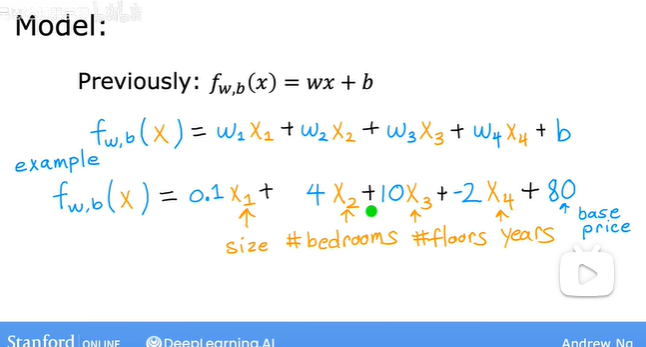 Model:
Previously: f_{w,b}(x) = wx + b
f_{w,b}(x) = w₁x₁ + w₂x₂ + w₃x₃ + w₄x₄ + b
example
f_{w,b}(x) = 0.1x₁ + 4x₂ + 10x₃ + -2x₄ + 80
size #bedrooms #floors years base price
Stanford ONLINE DeepLearning.AI Andrew Ng